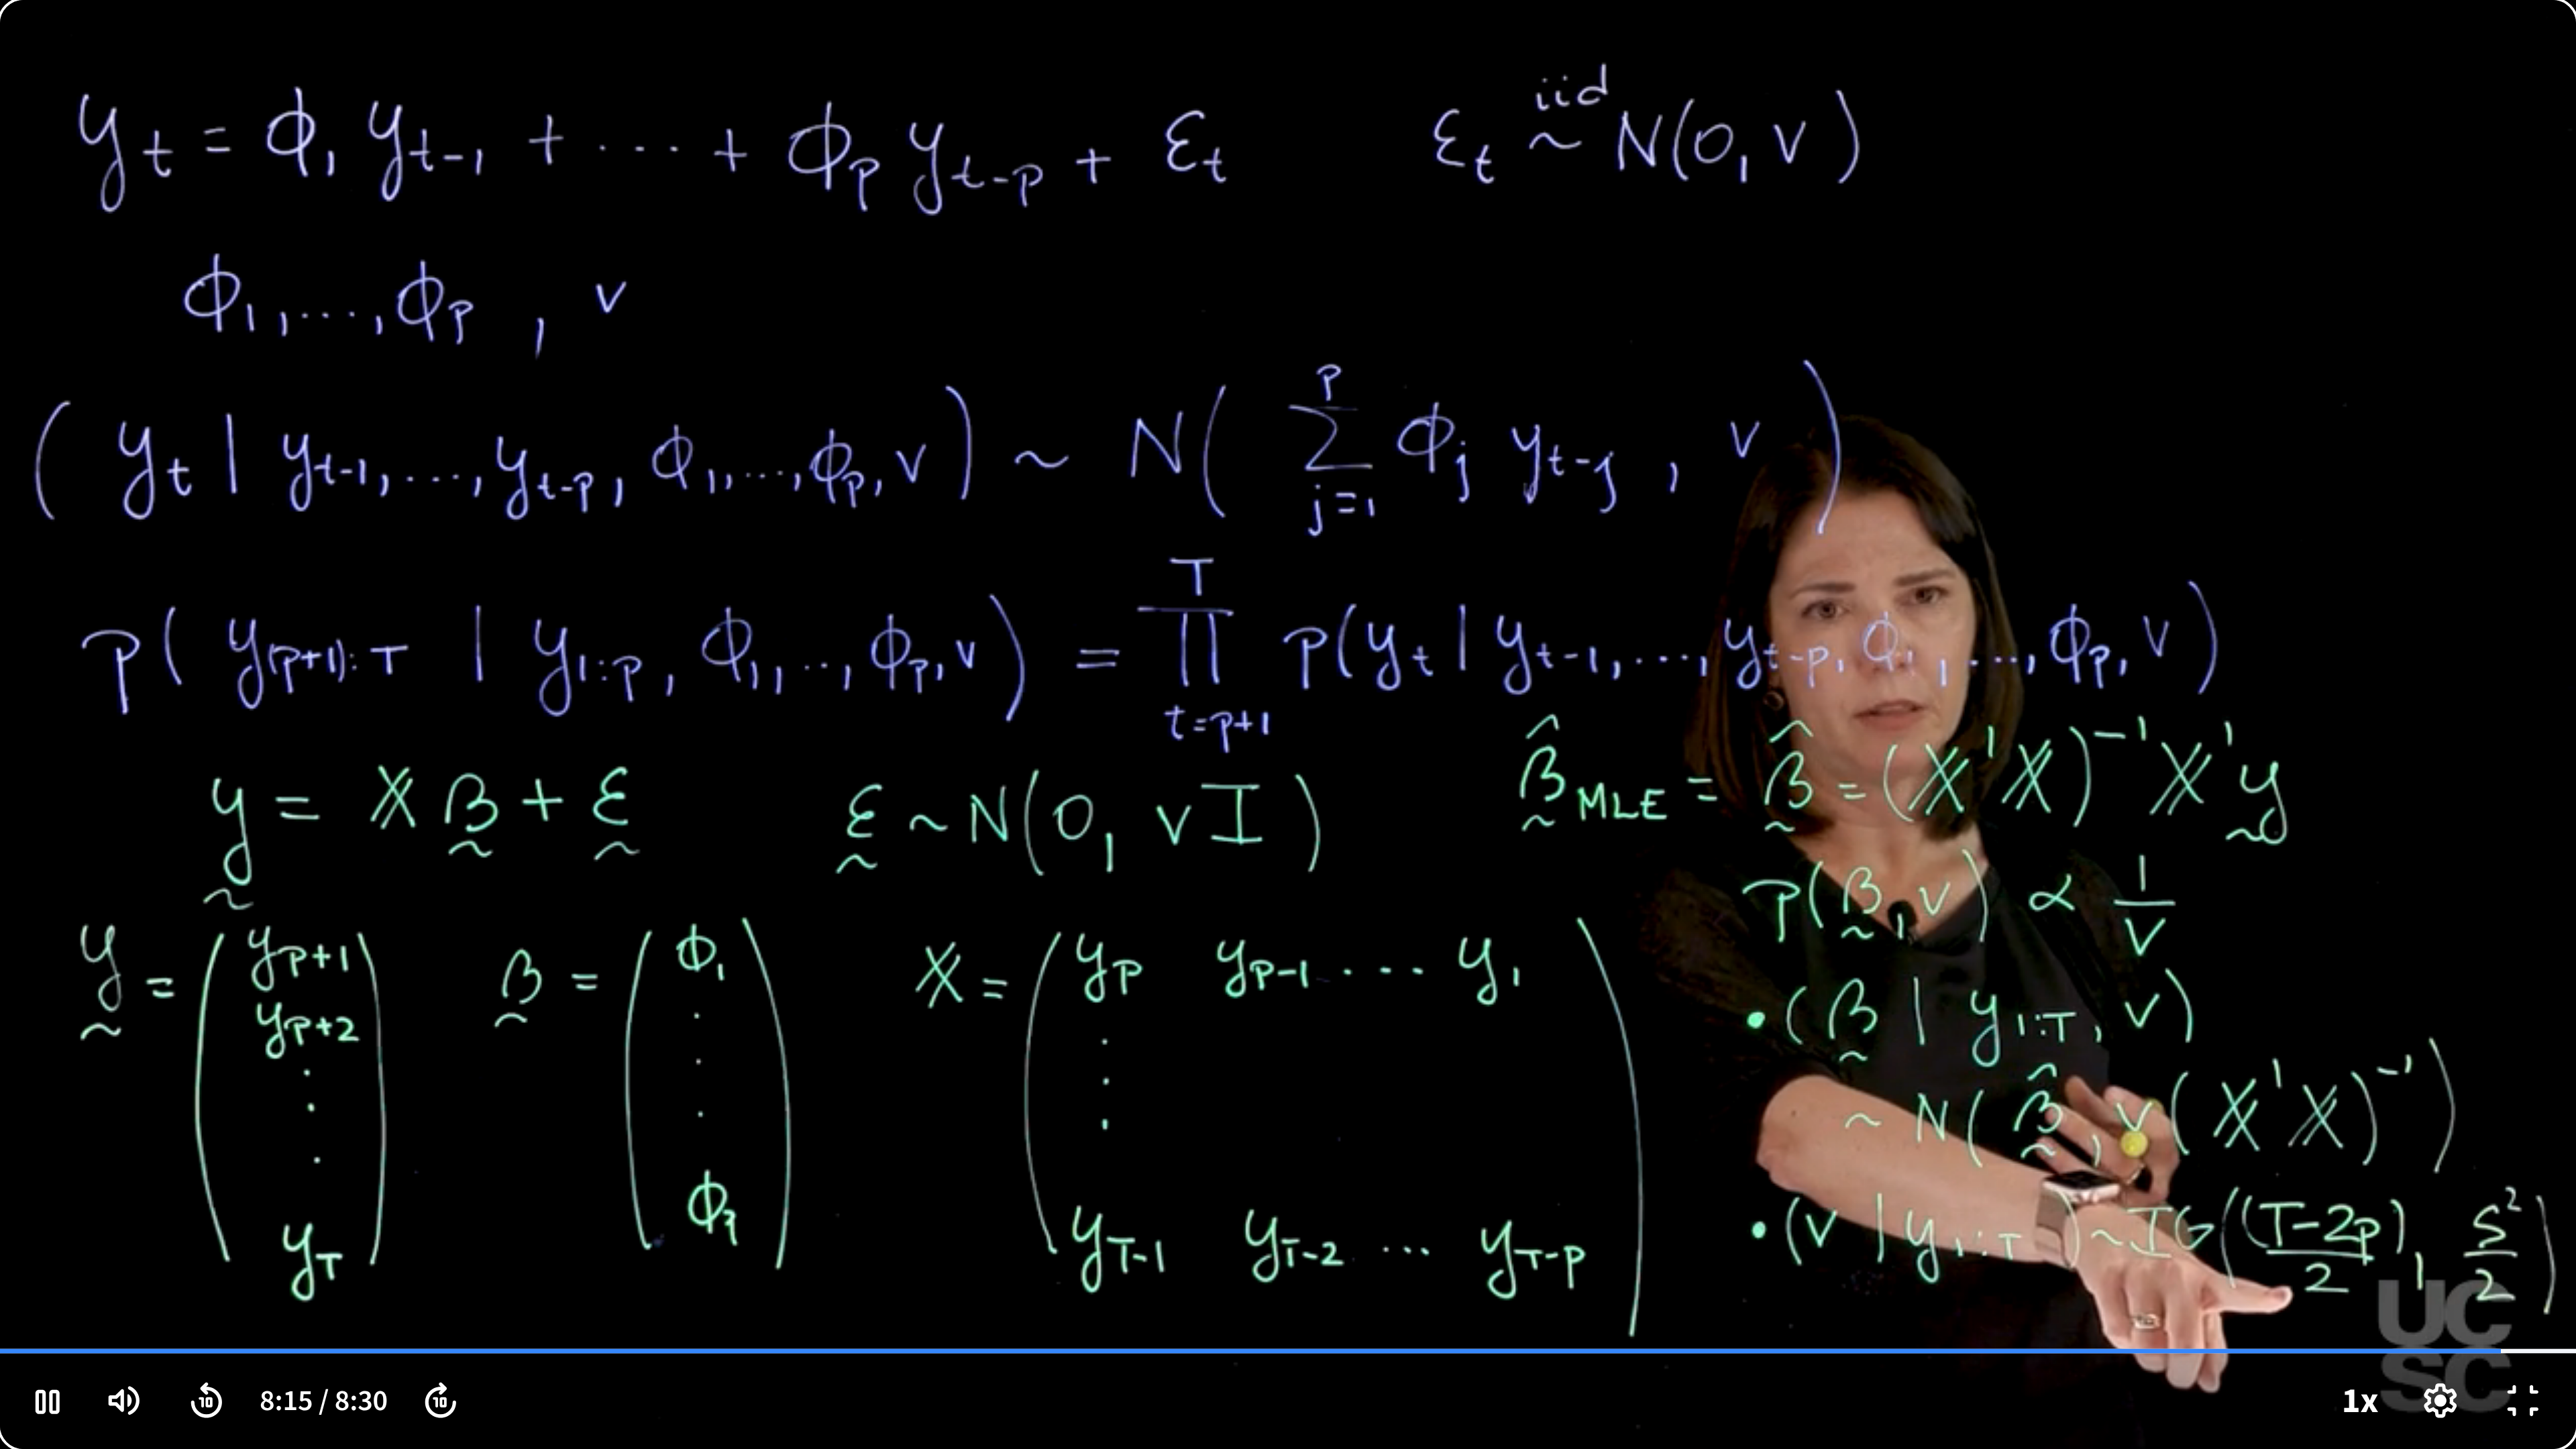 y_t = ϕ_1 y_{t-1} + ... + ϕ_p y_{t-p} + ε_t    ε_t iid ~ N(0, v)
ϕ_1, ..., ϕ_p, v
(y_t | y_{t-1}, ..., y_{t-p}, ϕ_1, ..., ϕ_p, v) ~ N( ∑_{j=1}^{p} ϕ_j y_{t-j}, v )
p( y_{(p+1):T} | y_{1:p}, ϕ_1, ..., ϕ_p, v ) = ∏_{t=p+1}^{T} p(y_t | y_{t-1}, ..., y_{t-p}, ϕ_1, ..., ϕ_p, v)
y = X β + ε    ε ~ N(0, v I)
y = ( y_{p+1} y_{p+2} ⋮ y_T )    β = ( ϕ_1 ⋮ ϕ_p )    X = ( y_p y_{p-1} ... y_1 ⋮ y_{T-1} y_{T-2} ... y_{T-p} )
β̂_{MLE} = β̂ = (X'X)^{-1} X' y
p(β, v) ∝ 1/v
• (β | y_{1:T}, v)
~ N( β̂, v (X'X)^{-1} )
• (v | y_{1:T}) ~ IG( (T-2p)/2, s²/2 )
UC
SC
10 8:15 / 8:30 10 1x